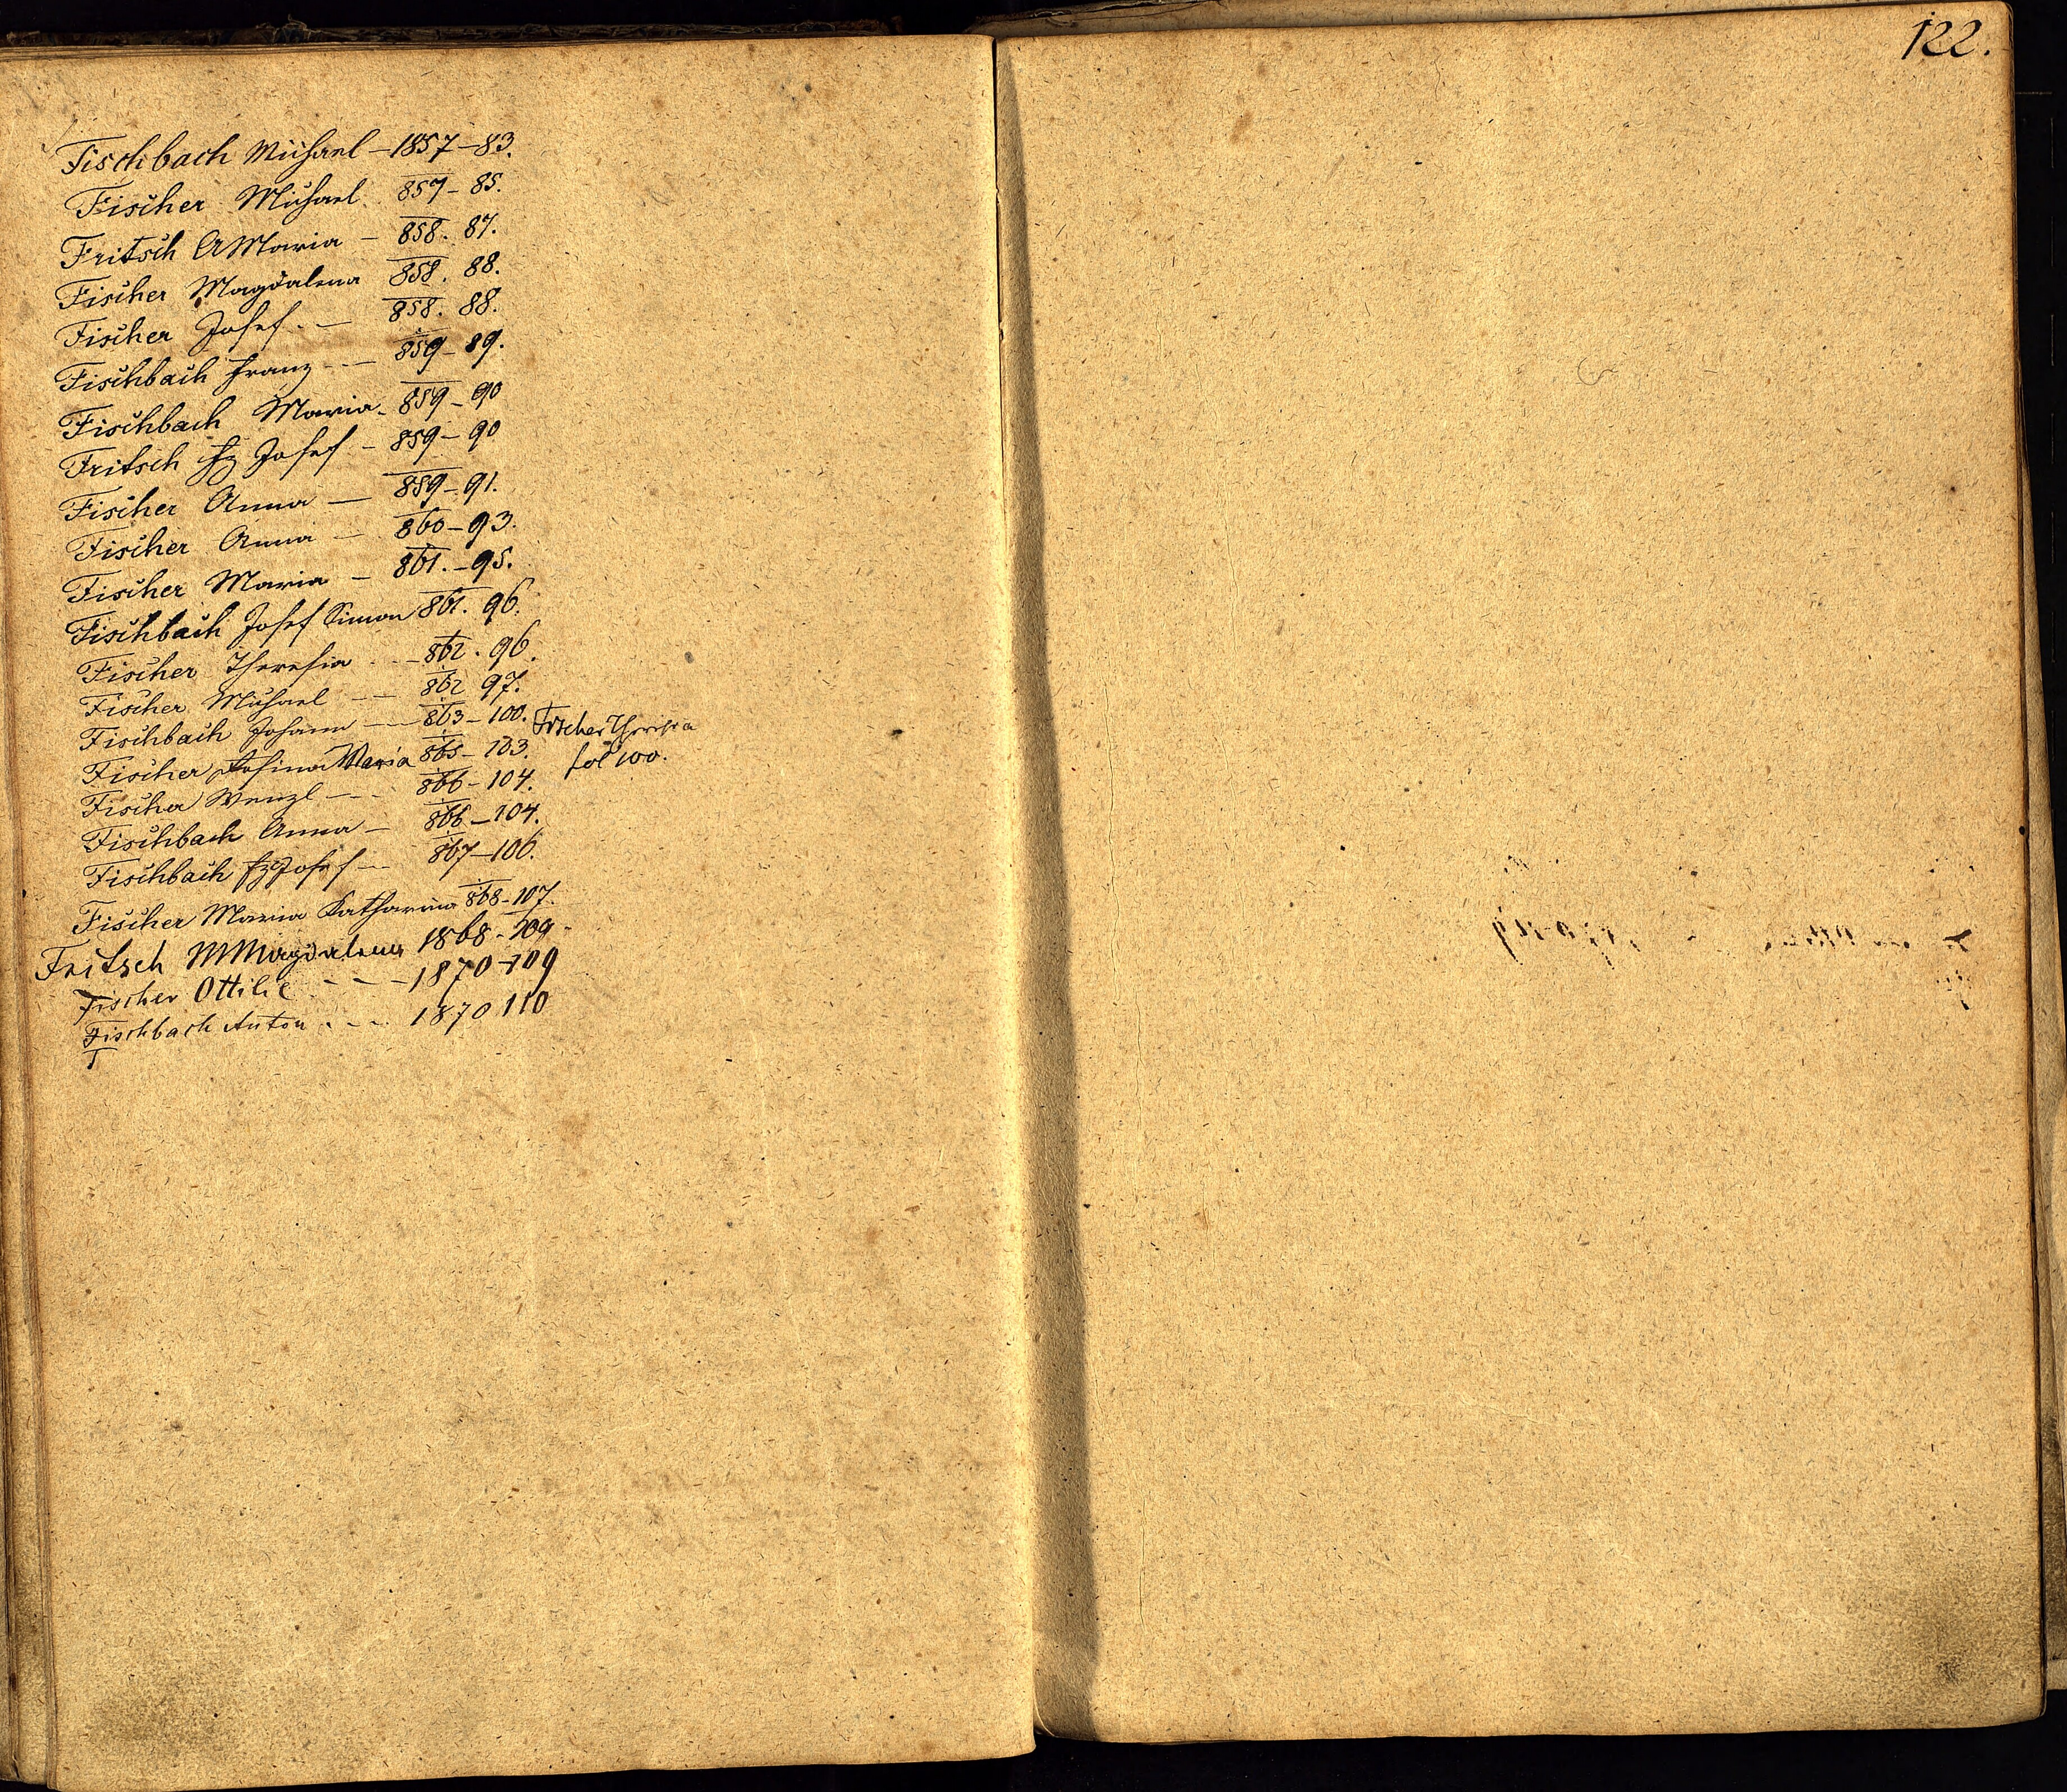 122.
Fischbach Michael – 1857 – 83.
Fischer Michael. 857 – 85.
Fritsch AMaria – 858. 87.
Fischer Magdalena 858. 88.
Fischer Josef. – 858. 88.
Fischbach Franz – – 859 – 89.
Fischbach Maria – 859 – 90
Fritsch Fz Josef – 859 – 90
Fischer Anna – 859 – 91.
Fischer Anna – 860 – 93.
Fischer Maria – 861. – 95.
Fischbach Josef Simon 861. 96.
Fischer Theresia – 862. 96.
Fischer Michael – – 862 97.
Fischbach Johann – – 863 – 100. Fischer Theresia
fol 100.
Fischer Maria 865 – 103.
Fischer Wenzl – – 866 – 104.
Fischbach Anna – 866 – 104.
Fischbach FzJosef – 867 – 106.
Fischer Maria Katharina 868 – 107.
Fritsch MMagdalena 1868 – 109 –
Fischer Ottilie – – – 1870 – 109
Fischbach Anton . – – 1870 110